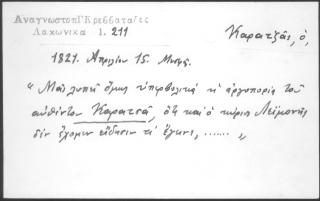 ΑναγνωστοπΓΚρεββαταίες
Λακωνικα 1. 211
Καρατζᾶς, ὁ,
1821. Ἀπριλίου 15.
"Μᾶς λυπεῖ ὅμως ὑπερβολικὰ ἡ ἀργοπορία τοῦ
αὐθέντου Καρατσᾶ, ὅτι καὶ ὁ κύριος
δὲν ἔχομεν εἴδησιν τί ἔγινε, ......."